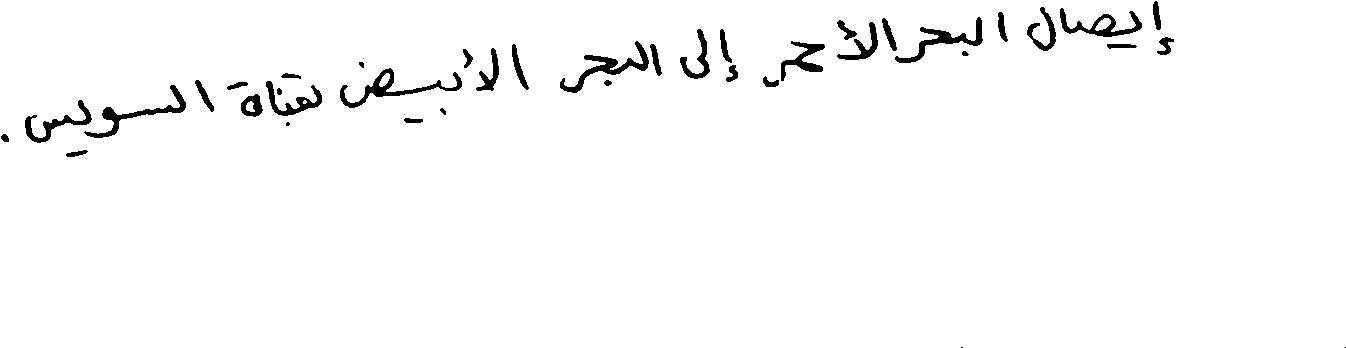 إيصال البحر الأحمر إلى البحر الأبيض بقناة السويس.